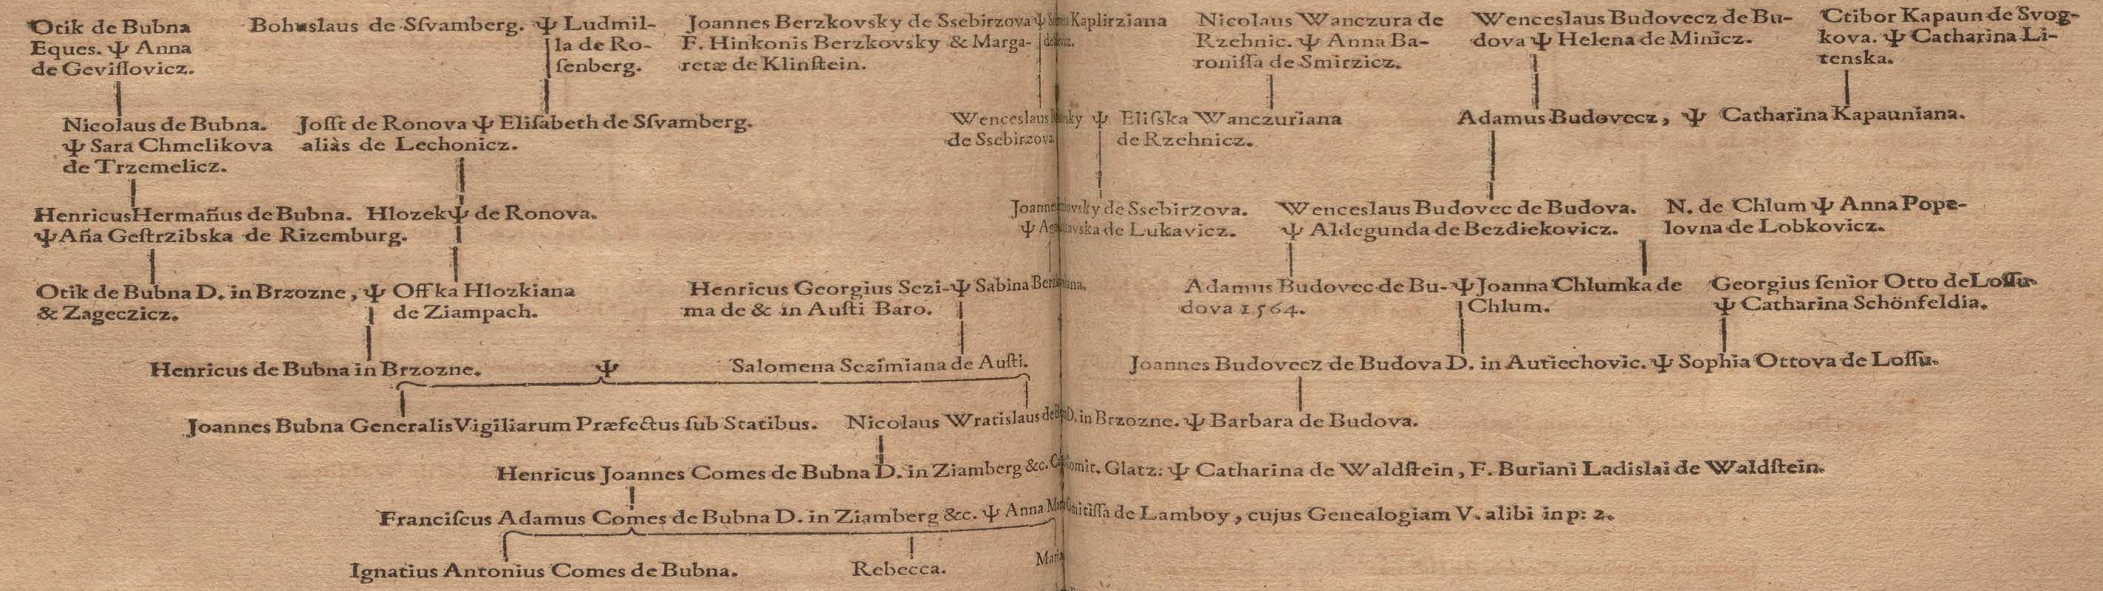 Otik de Bubna
Eques. Ψ Anna
de Geviſſovicz.
Bohuslaus de Sſvamberg. Ψ Ludmil-
la de Ro-
ſenberg.
Joannes Berzkovsky de Ssebirzova Ψ Kaplirziana
F. Hinkonis Berzkovsky & Marga-
retæ de Klinſtein.
Nicolaus Wanczura de
Rzehnic. Ψ Anna Ba-
roniſſa de Smirzicz.
Wenceslaus Budovecz de Bu-
dova Ψ Helena de Minicz.
Ctibor Kapaun de Svog-
kova. Ψ Catharina Li-
tenska.
Nicolaus de Bubna.
Ψ Sara Chmelikova
de Trzemelicz.
Joſſt de Ronova Ψ Eliſabeth de Sſvamberg.
aliàs de Lechonicz.
Wenceslaus Ψ Eliſska Wanczuriana
de Ssebirzova
de Rzehnicz.
Adamus Budovecz, Ψ Catharina Kapauniana.
Henricus Hermañus de Bubna.
Ψ Aña Geſtrzibska de Rizemburg.
Hlozek Ψ de Ronova.
de Ssebirzova.
Ψ de Lukavicz.
Wenceslaus Budovec de Budova.
Ψ Aldegunda de Bezdiekovicz.
N. de Chlum Ψ Anna Pope-
lovna de Lobkovicz.
Otik de Bubna D. in Brzozne, Ψ Offka Hlozkiana
& Zageczicz.
de Ziampach.
Henricus Georgius Sezi- Ψ Sabina
ma de & in Auſti Baro.
Adamus Budovec de Bu- Ψ Joanna Chlumka de
dova 1564.
Chlum.
Georgius ſenior Otto de Loſſu.
Ψ Catharina Schönfeldia.
Henricus de Bubna in Brzozne. Ψ Salomena Sezimiana de Auſti.
Joannes Budovecz de Budova D. in Autiechovic. Ψ Sophia Ottova de Loſſu.
Joannes Bubna Generalis Vigiliarum Præfectus ſub Statibus.
Nicolaus Wratislaus de D. in Brzozne. Ψ Barbara de Budova.
Henricus Joannes Comes de Bubna D. in Ziamberg &c. Glatz: Ψ Catharina de Waldſtein, F. Buriani Ladislai de Waldſtein.
Franciſcus Adamus Comes de Bubna D. in Ziamberg &c. Ψ Anna de Lamboy, cujus Genealogiam V. alibi in p: 2.
Ignatius Antonius Comes de Bubna.
Rebecca.